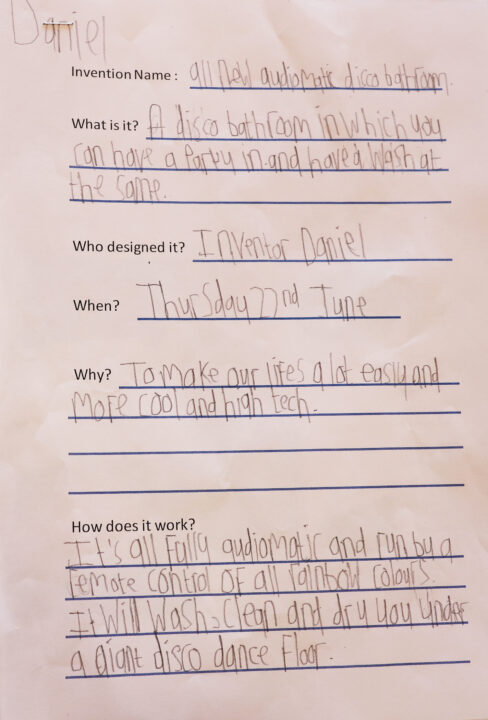 Daniel
Invention Name : all new audiomatic disco bathroom.
What is it? A disco bathroom in which you
can have a Party in and have a wash at
the same.
Who designed it? Inventor Daniel
When? Thursday 22nd June
Why? To make our lifes a lot easly and
more cool and high tech.
How does it work?
It's all fully audiomatic and run by a
remote control of all rainbow colours.
It will wash, clean and dry you under
a giant disco dance floor.